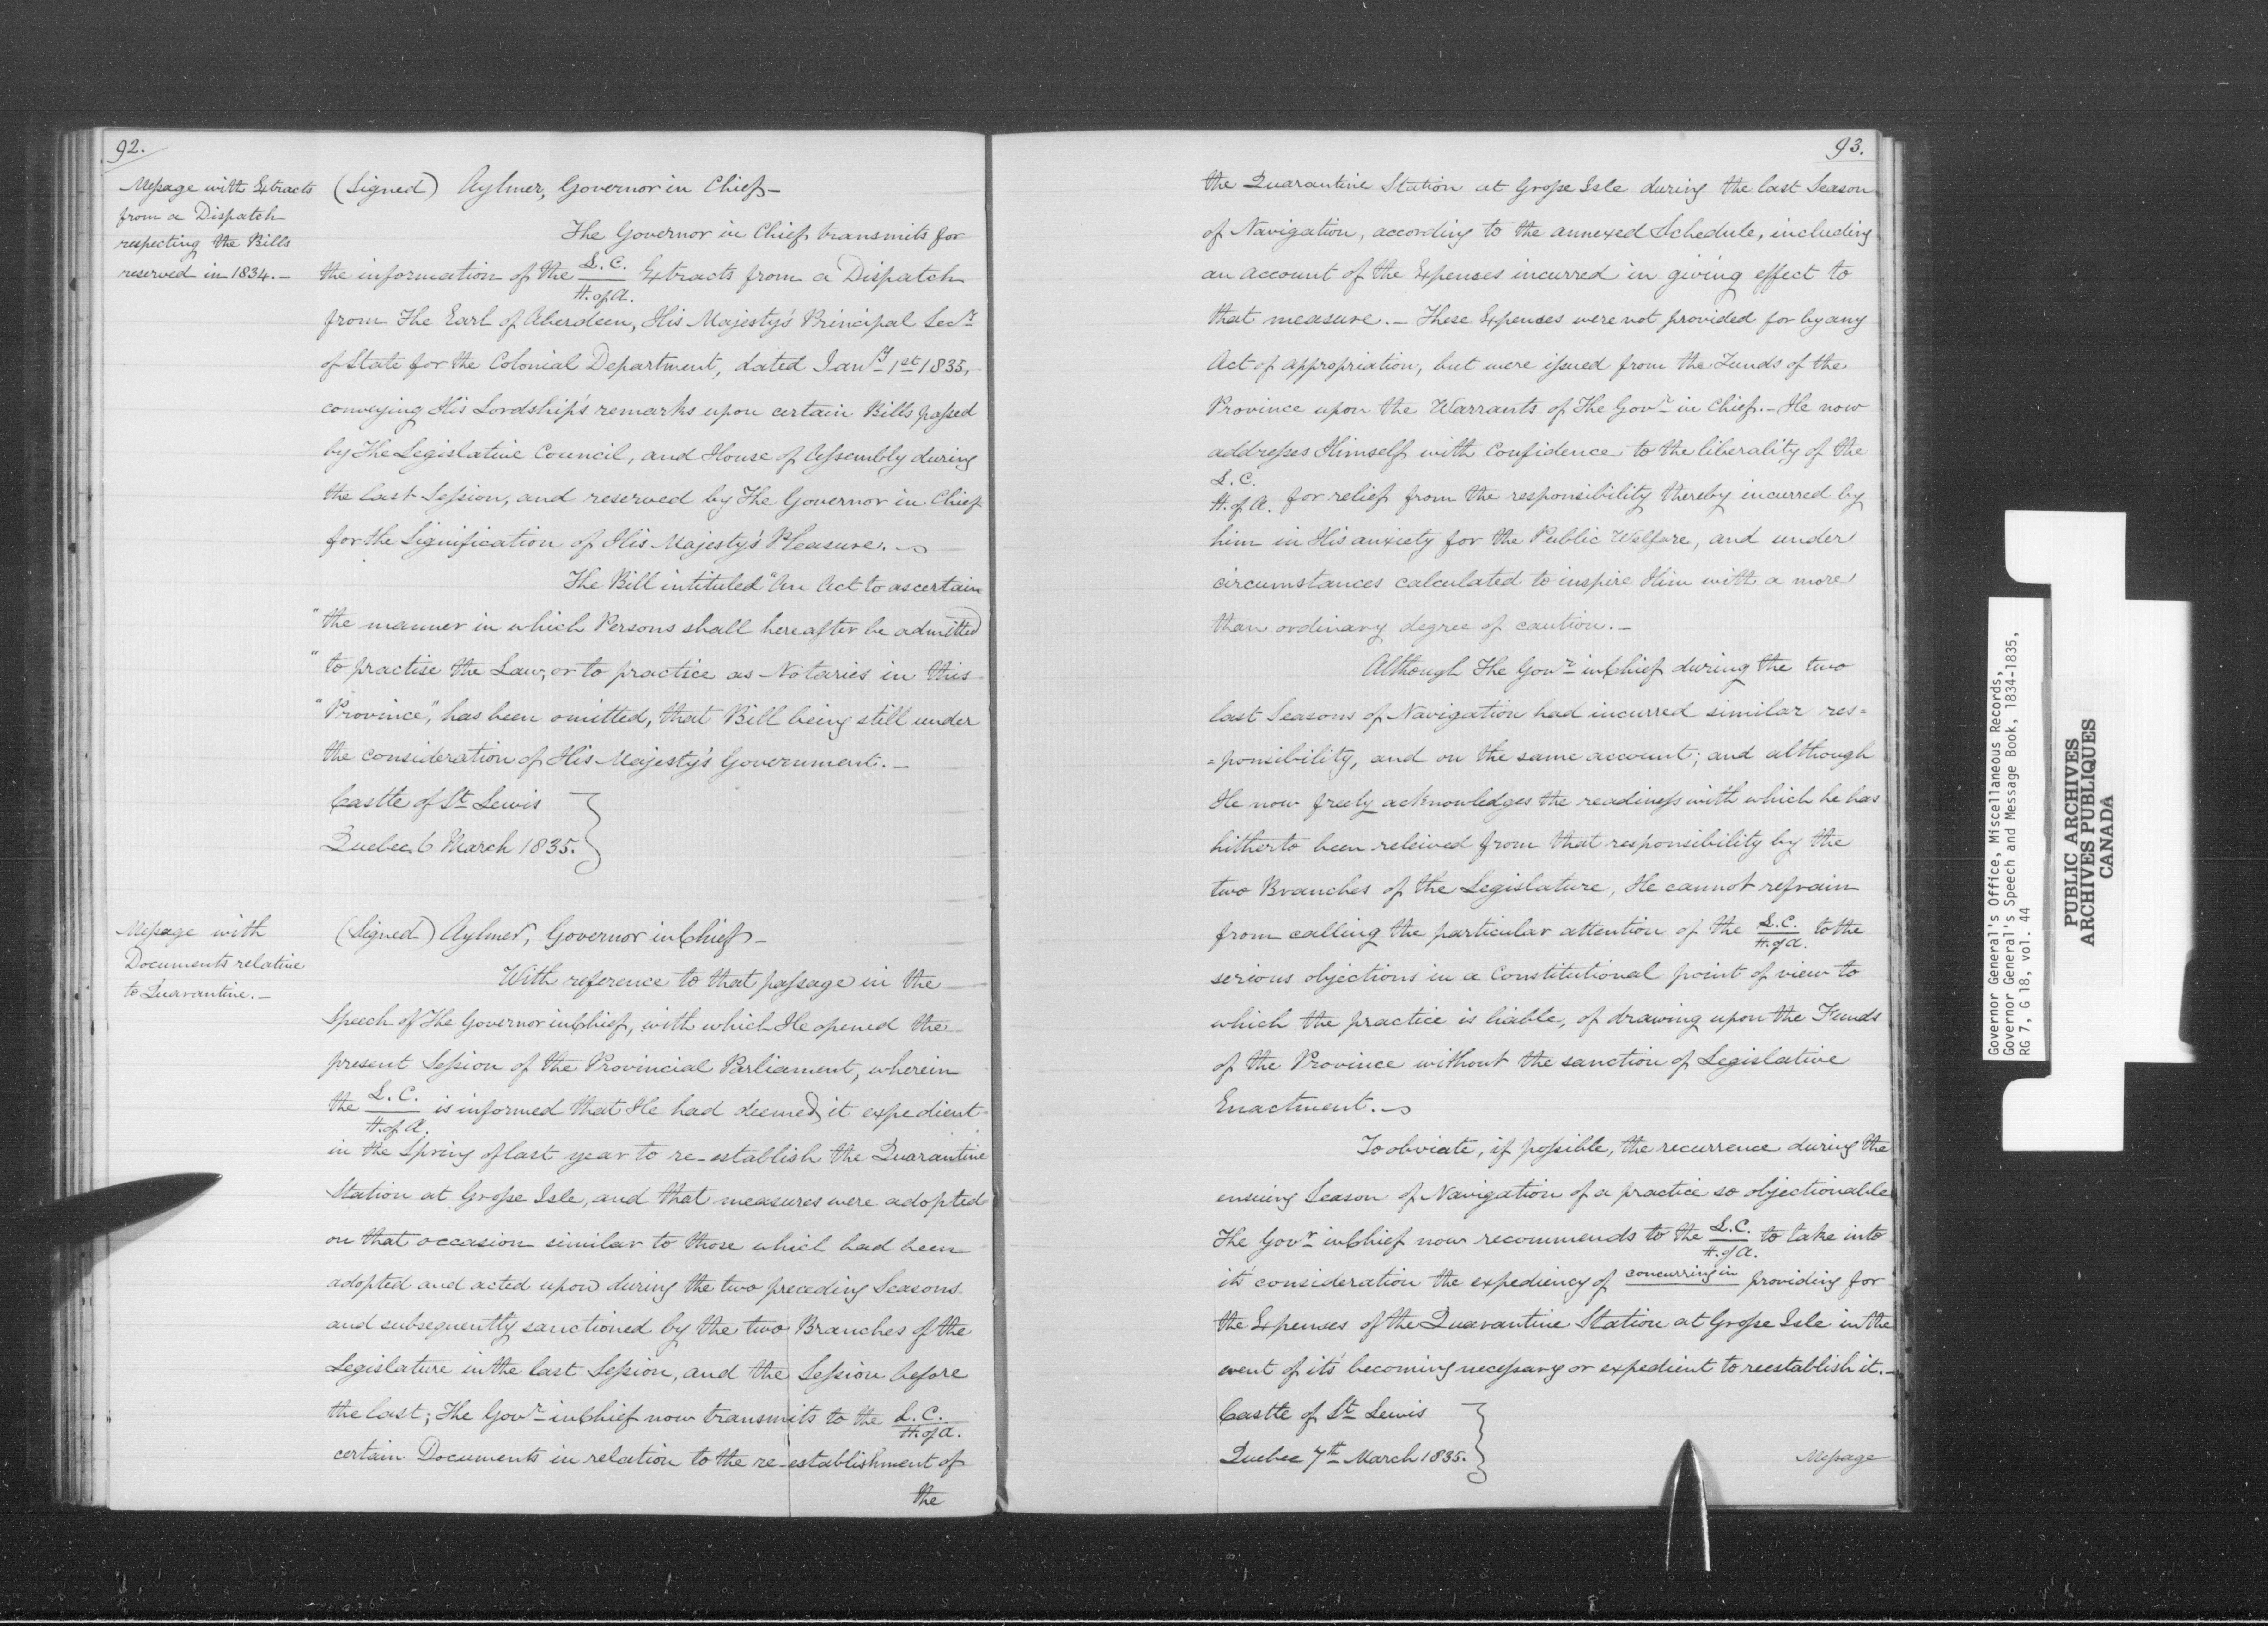 92.
Message with Extracts
from a Dispatch
respecting the Bills
reserved in 1834.—
(Signed) Aylmer, Governor in Chief—
The Governor in Chief transmits for
the information of the L. C. / H. of A. Extracts from a Dispatch
from The Earl of Aberdeen, His Majesty's Principal Secry
of State for the Colonial Department, dated Jany 1st 1835,
conveying His Lordship's remarks upon certain Bills passed
by The Legislative Council, and House of Assembly during
the last Session, and reserved by The Governor in Chief
for the Signification of His Majesty's Pleasure.
The Bill intituled "An Act to ascertain
"the manner in which Persons shall hereafter be admitted
"to practise the Law, or to practice as Notaries in this
"Province", has been omitted, that Bill being still under
the consideration of His Majesty's Government.—
Castle of St Lewis
Quebec 6 March 1835.
Message with
Documents relative
to Quarantine.—
(Signed) Aylmer, Governor in Chief—
With reference to that passage in the
Speech of The Governor in Chief, with which He opened the
present Session of the Provincial Parliament, wherein
the L. C. / H. of A. is informed that He had deemed it expedient
in the Spring of last year to re-establish the Quarantine
Station at Grosse Isle, and that measures were adopted
on that occasion similar to those which had been
adopted and acted upon during the two preceding Seasons
and subsequently sanctioned by the two Branches of the
Legislature in the last Session, and the Session before
the last; The Govr in Chief now transmits to the L. C. / H. of A.
certain Documents in relation to the re-establishment of
the
93.
the Quarantine Station at Grosse Isle during the last Season
of Navigation, according to the annexed Schedule, including
an account of the Expenses incurred in giving effect to
that measure.— These Expenses were not provided for by any
Act of appropriation, but were issued from the Funds of the
Province upon the Warrants of The Govr in Chief.— He now
addresses Himself with Confidence to the liberality of the
L. C. / H. of A. for relief from the responsibility thereby incurred by
him in His anxiety for the Public Welfare, and under
circumstances calculated to inspire Him with a more
than ordinary degree of caution.—
Although The Govr in Chief during the two
last Seasons of Navigation had incurred similar res=
=ponsibility, and on the same account; and although
He now freely acknowledges the readiness with which he has
hitherto been releived from that responsibility by the
two Branches of the Legislature, He cannot refrain
from calling the particular attention of the L. C. / H. of A. to the
serious objections in a Constitutional point of view to
which the practice is liable, of drawing upon the Funds
of the Province without the sanction of Legislative
Enactment.
To obviate, if possible, the recurrence during the
ensuing Season of Navigation of a practice so objectionable
The Govr in Chief now recommends to the L. C. / H. of A. to take into
its' consideration the expediency of concurring in providing for
the Expenses of the Quarantine Station at Grosse Isle in the
event of its' becoming necessary or expedient to reestablish it.—
Castle of St Lewis
Quebec 7th March 1835.
Message
Governor General's Office, Miscellaneous Records,
Governor General's Speech and Message Book, 1834-1835,
RG 7, G 18, vol. 44
PUBLIC ARCHIVES
ARCHIVES PUBLIQUES
CANADA